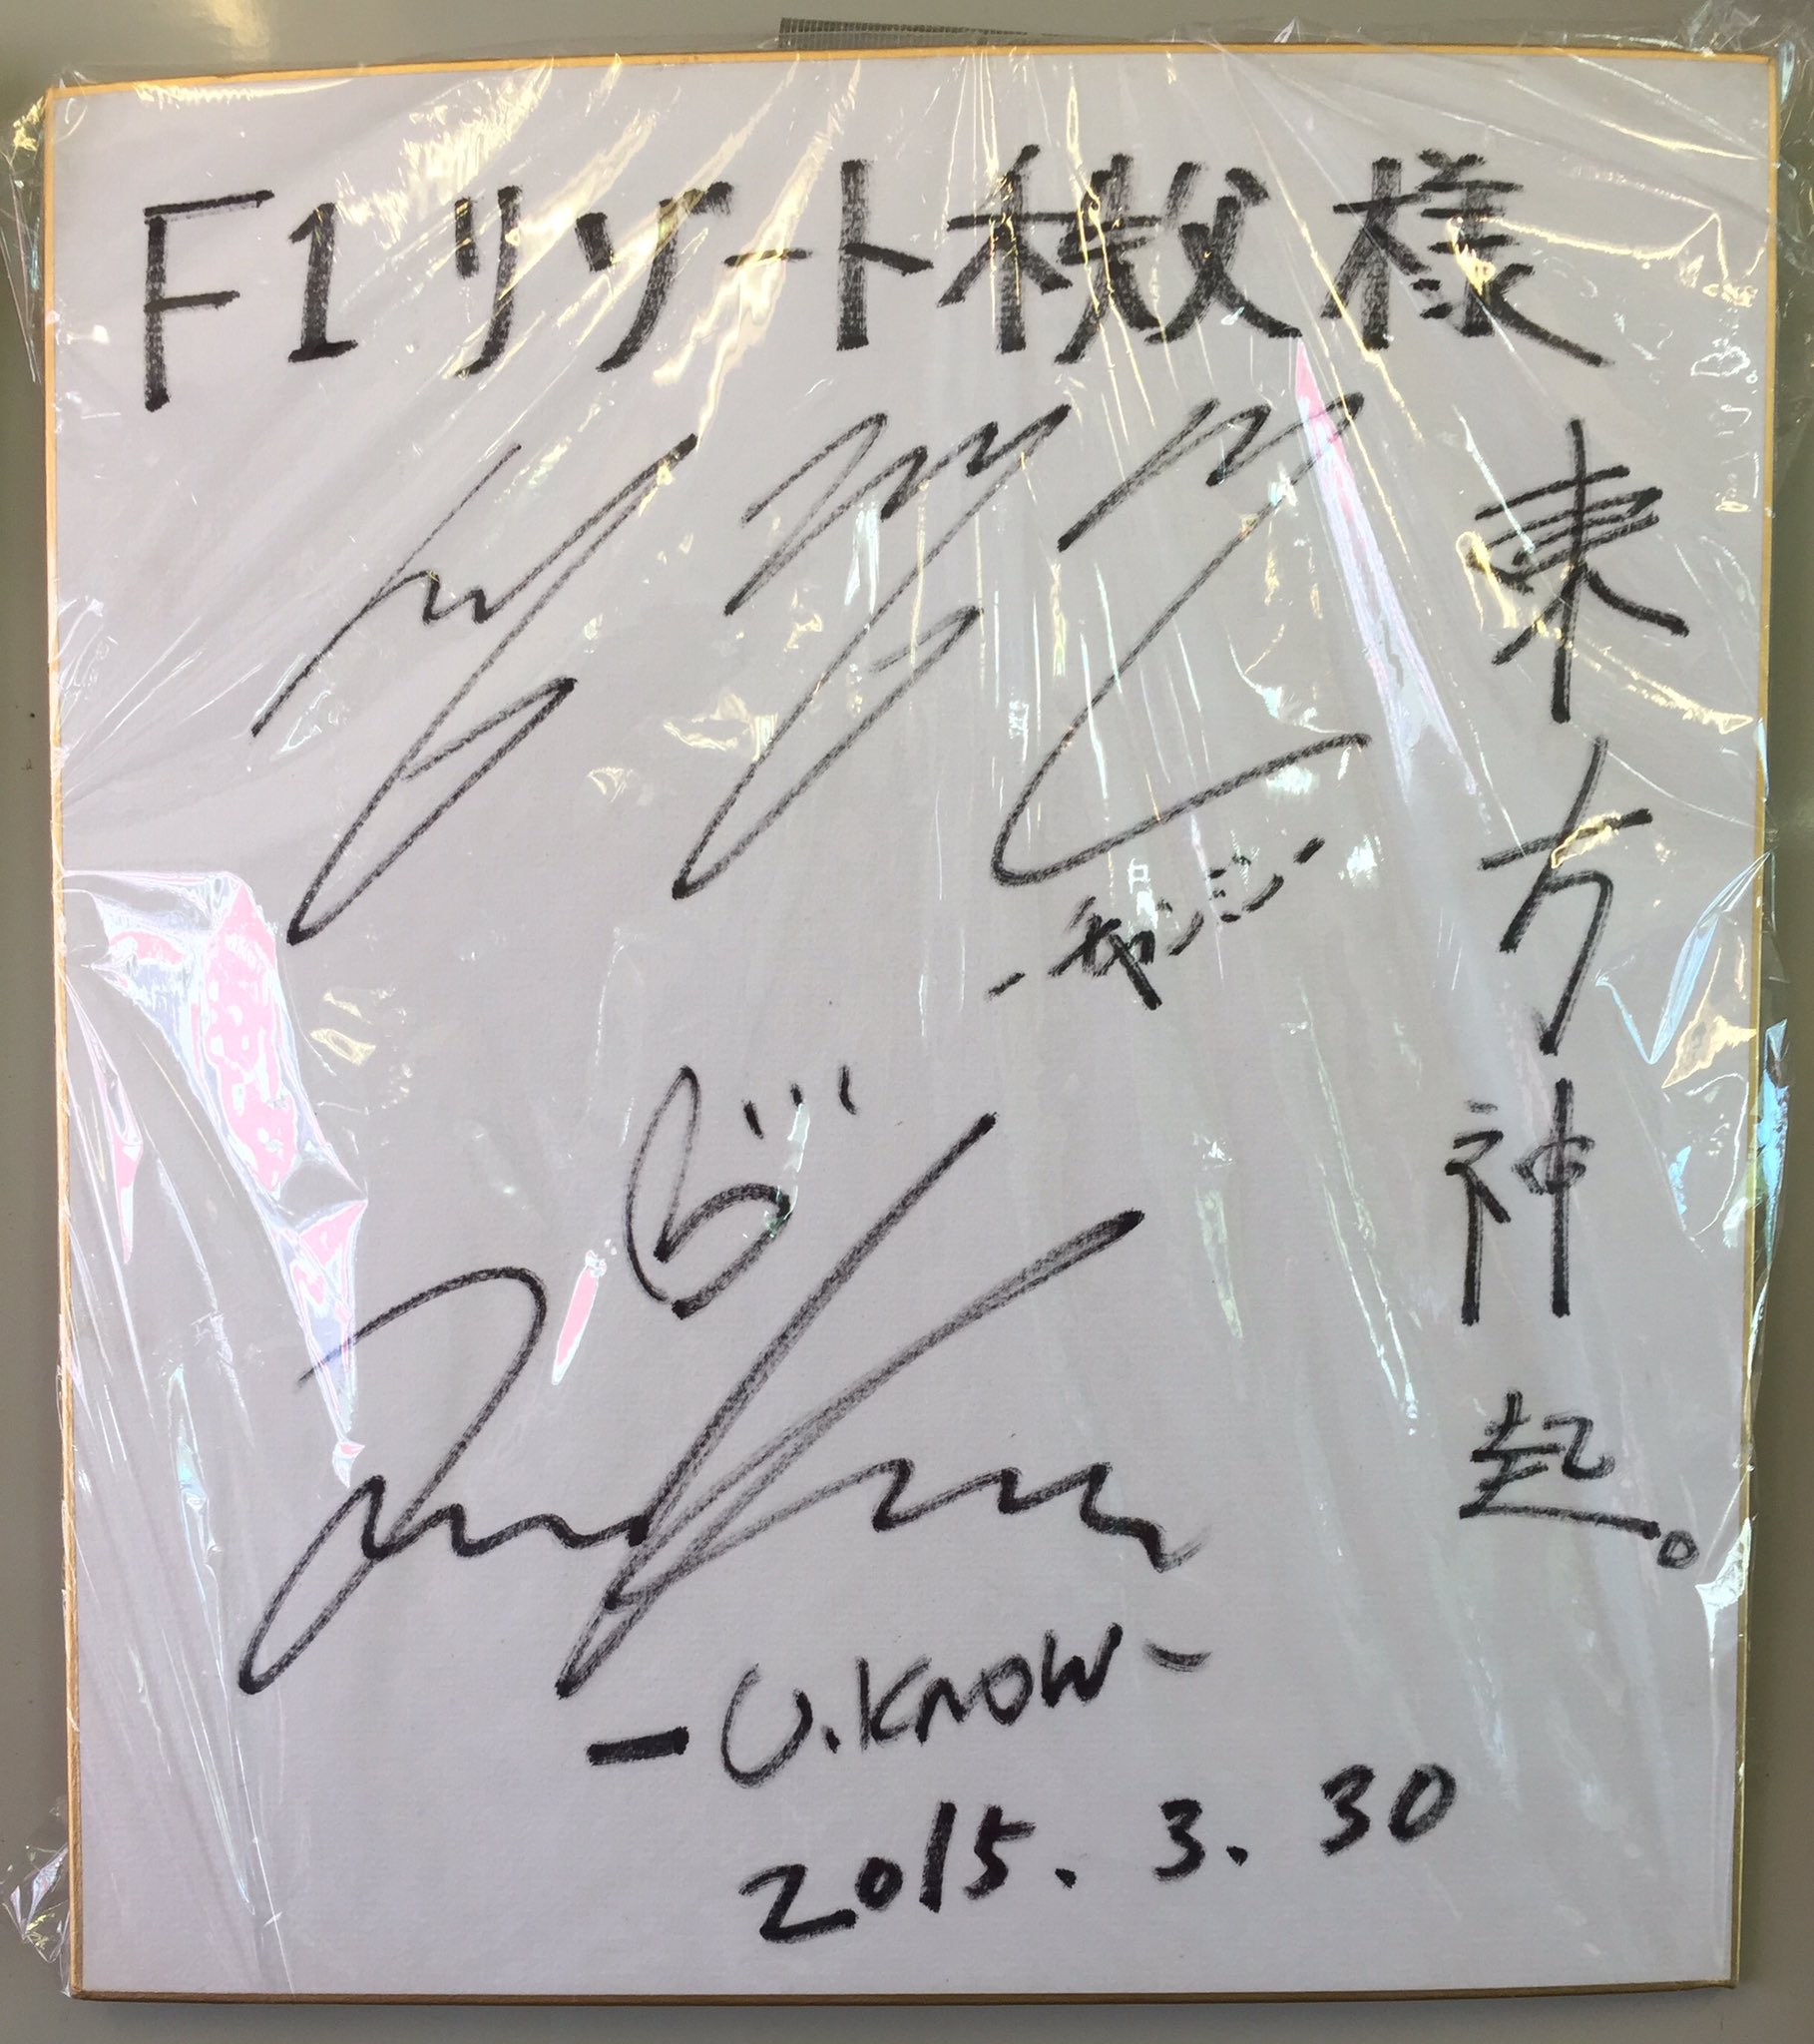 F1リゾート秩父様
東方神起。
-チャンミン-
-U.KNOW-
2015. 3. 30